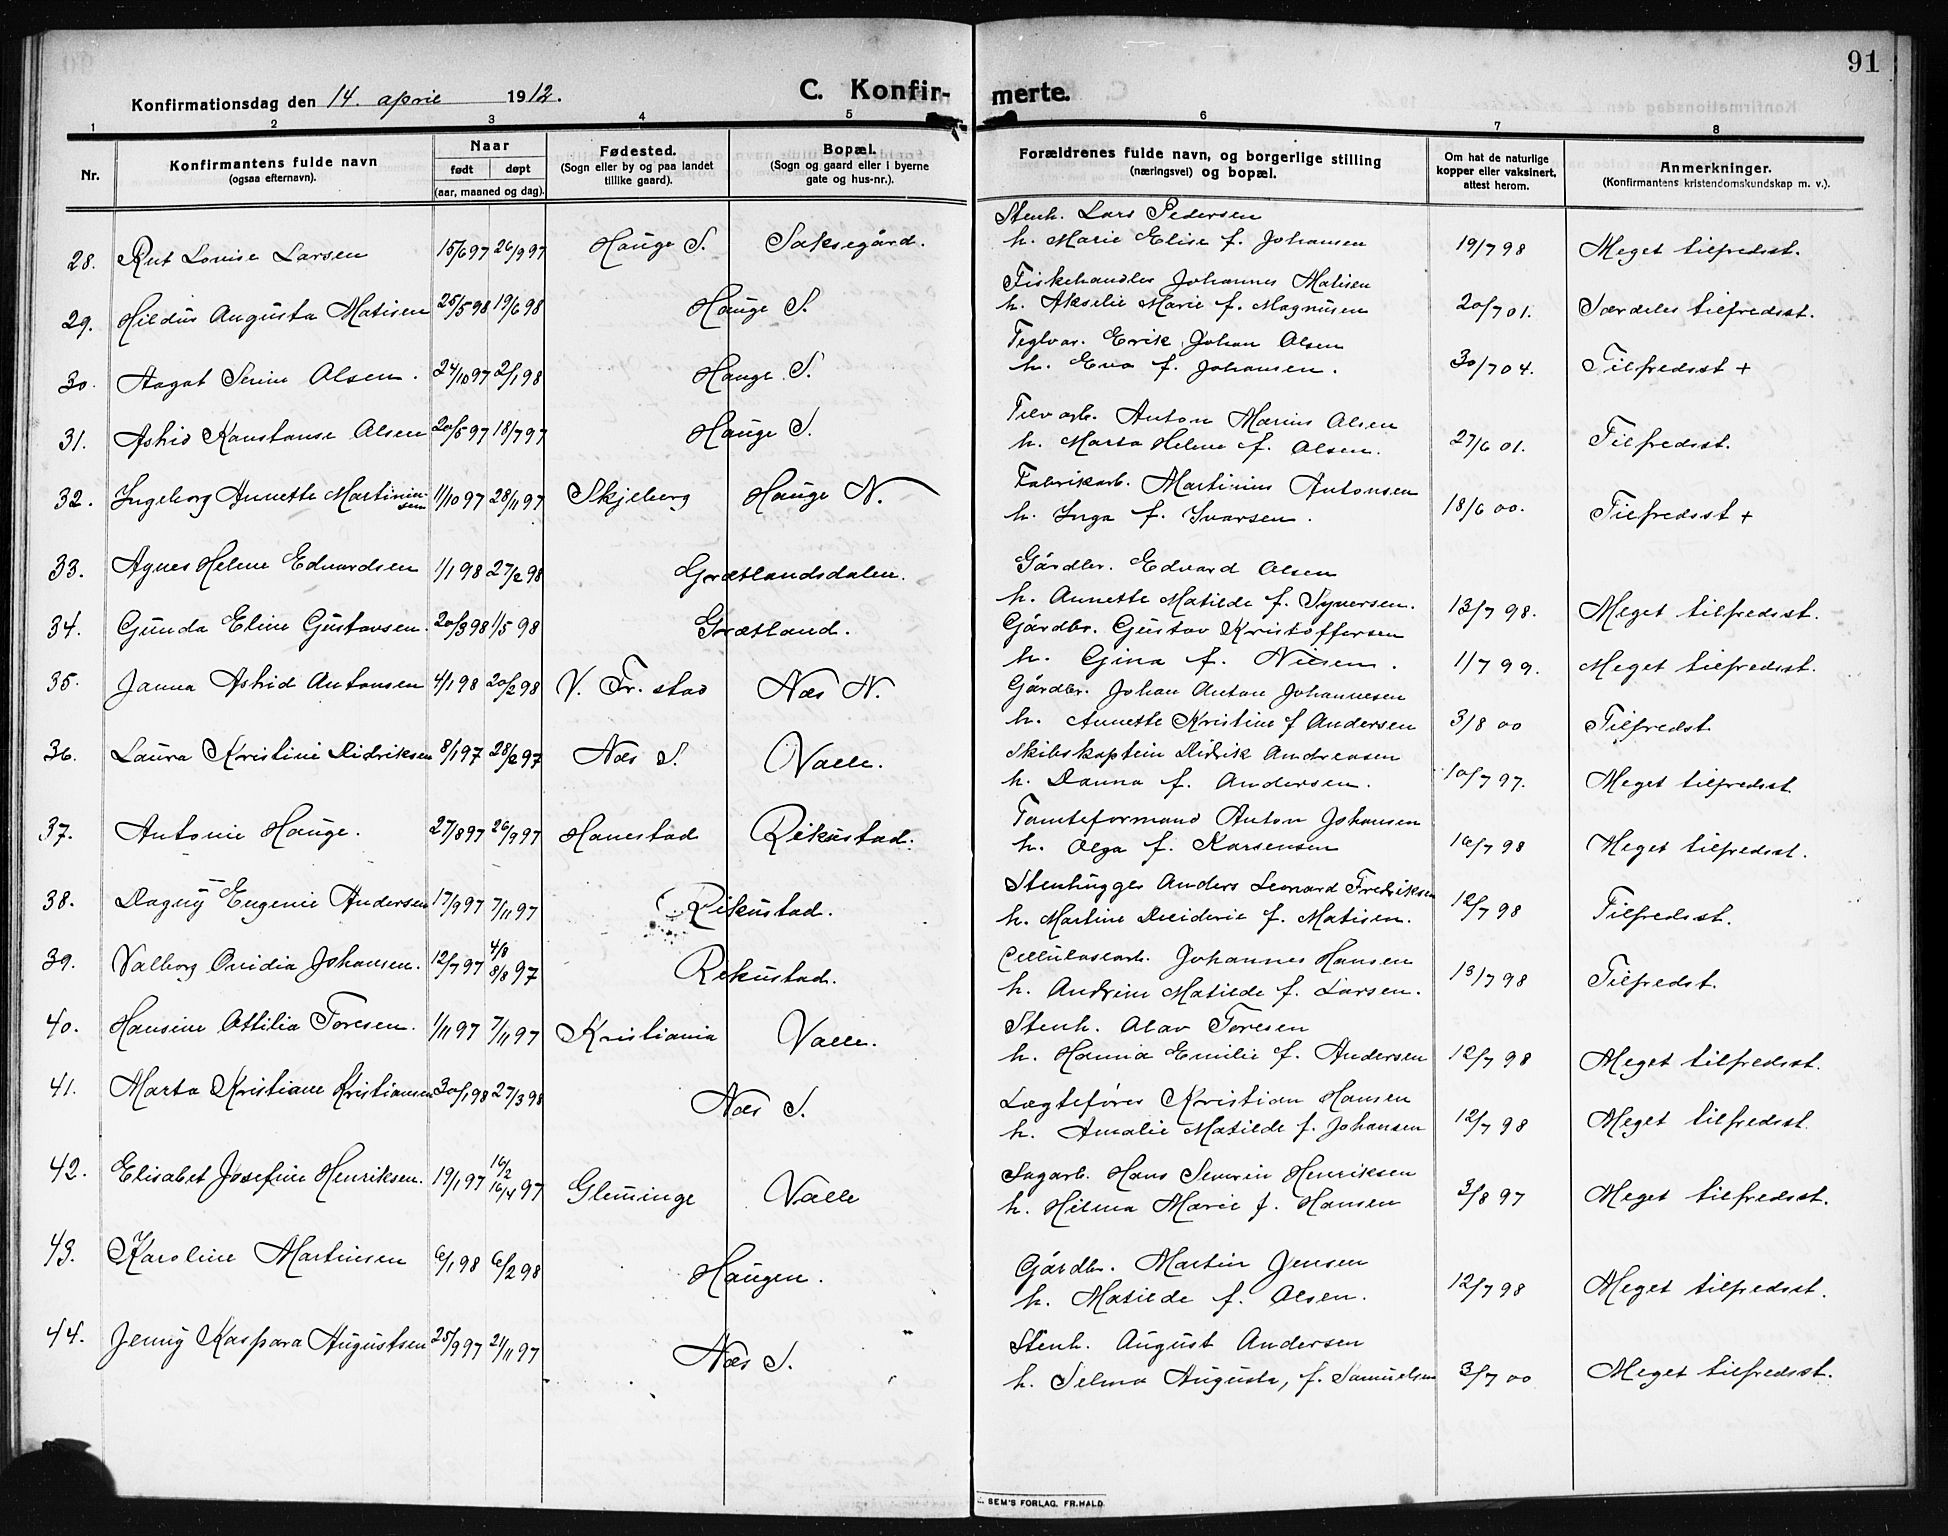 91
Konfirmationsdag den 14. april 1912. C. Konfir- merte.
1 2 3 4 5 6 7 8
Nr. Konfirmantens fulde navn (ogsaa efternavn). Naar født døpt (aar, maaned og dag). Fødested. (Sogn eller by og paa landet tillike gaard). Bopæl. (Sogn og gaard eller i byerne gate og hus-nr.). Forældrenes fulde navn, og borgerlige stilling (næringsvei) og bopæl. Om hat de naturlige kopper eller vaksinert, attest herom. Anmerkninger. (Konfirmantens kristendomskundskap m. v.).
Stenh. Lars Pedersen
28. Rut Lovise Larsen 15/6 97 26/9 97 Hauge S. Saksegård. h. Marie Elise f. Johansen 19/7 98 Meget tilfredsst.
Fiskehandler Johannes Matisen
29. Hildur Augusta Matisen 25/5 98 19/6 98 Hauge S. h. Akselie Marie f. Magnusen 20/7 01. Særdeles tilfredsst.
Teglvar. Erik Johan Olsen
30. Aagot Serine Olsen. 24/10 97 2/1 98 Hauge S. h. Eva f. Johansen. 30/7 04. Tilfredsst +
arb. Anton Marius Olsen
31. Astrid Konstanse Olsen 20/5 97 18/7 97 Hauge S. h. Marta Helene f. Olsen. 27/6 01. Tilfredsst.
Fabrikarb. Martinius Antonsen
32. Ingeborg Annette Martinin-sen 11/10 97 28/11 97 Skjeberg Hauge N. h. Inga f. Ivarsen. 18/6 00. Tilfredsst +
33. Agnes Helene Edvardsen 1/1 98 27/2 98 Grætlandsdalen. Gårdbr. Edvard Olsen
h. Annette Matilde f. Syversen. 13/7 98. Meget tilfredsst.
34. Gunda Eline Gustavsen. 20/3 98 1/5 98 Grætland. Gårdbr. Gustav Kristoffersen
h. Gina f. Nilsen. 1/7 99. Meget tilfredsst.
35. Janna Astrid Antonsen 4/1 98 20/2 98 V. Fr. stad Næs N. Gårdbr. Johan Anton Johannesen
h. Annette Kristine f Andersen 3/8 00 Tilfredst
36. Laura Kristine Didriksen 8/1 97 28/2 97 Næs S. Valle. Skibskaptein Didrik Andreasen
h. Danna f. Andersen. 10/7 97. Meget tilfredsst
37. Antonie Hauge. 27/8 97 26/9 97 Hanestad Rikustad. Tomteformand Anton Johansen
h. Olga f. Karsensen 16/7 98 Meget tilfredsst.
38. Dagny Eugenie Andersen 17/9 97 7/11 97 Rikustad. Stenhugger Anders Leonard Fredriksen
h. Martine f. Matisen. 12/7 98 Tilfredsst.
39. Valborg Ovidia Johansen. 12/7 97 4/8 8/8 97 Rikustad. Cellulosearb. Johannes Hansen
h. Andrine Matilde f. Larsen. 13/7 98 Tilfredst.
40. Hansine Ottilia Toresen. 1/11 97 7/11 97 Kristiania Valle. Stenh. Olav Toresen
h. Hanna Emilie f. Andersen 12/7 98 Meget tilfredsst.
41. Marta Kristiane Kristiansen 30/1 98 27/3 98 Næs S. Lægtefører Kristian Hansen
h. Amalie Matilde f. Johansen 12/7 98 Meget tilfredsst.
42. Elisabet Josefine Henriksen. 19/1 97 16/2 16/4 97 Glemminge Valle Sagarb. Hans Severin Henriksen
h. Hilma Marie f. Hansen 3/8 97 Meget tilfredsst.
43. Karoline Martinsen 6/1 98 6/2 98 Haugen. Gårdbr. Martin Jensen
h. Matilde f. Olsen. 12/7 98 Meget tilfredsst.
44. Jenny Kaspara Augustsen 25/9 97 21/11 97 Næs S. Stenh. August Andersen
h. Selma Augusta, f. Samuelsen 3/7 00 Meget tilfredsst.
SEM'S FORLAG. FR.HALD